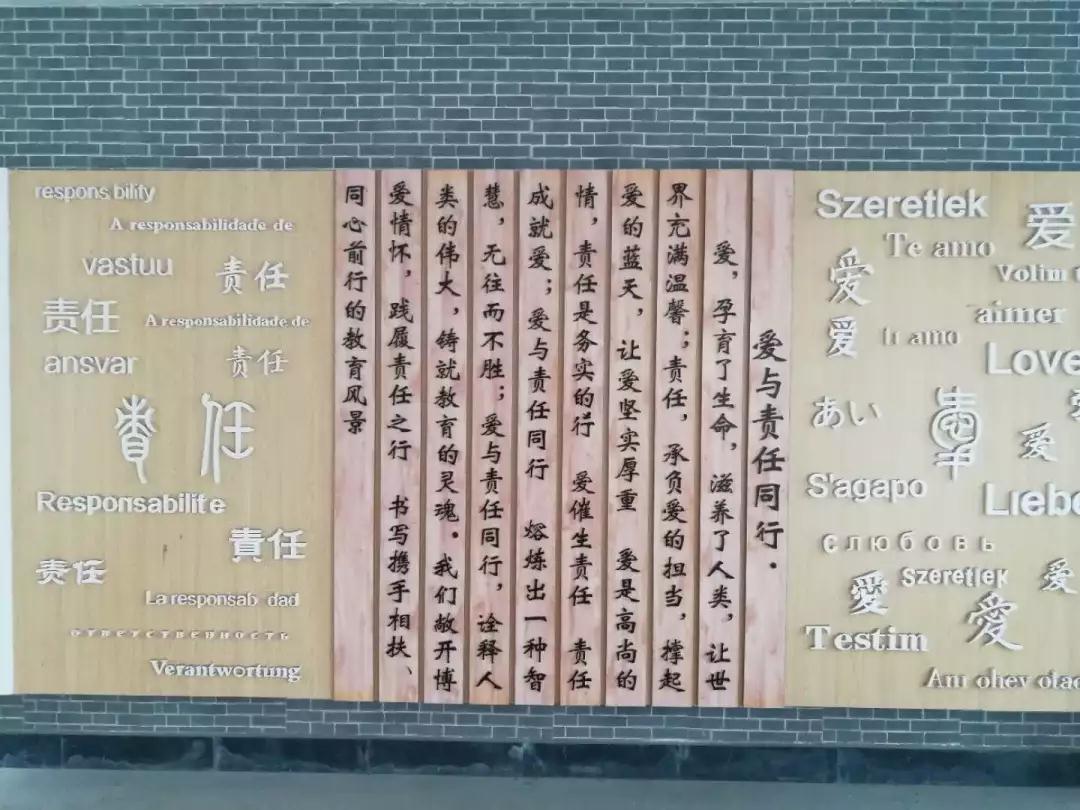 respons bility
A responsabilidade de
vastuu
责任
责任
A responsabilidade de
ansvar
责任
責任
Responsabilite
責任
责任
La responsab dad
ответственность
Verantwortung
爱与责任同行.
爱，孕育了生命，滋养了人类，让世
界充满温馨；责任，承负爱的担当，撑起
爱的蓝天，让爱坚实厚重 爱是高尚的
情，责任是务实的行 爱催生责任 责任
成就爱；爱与责任同行 熔炼出一种智
慧，无往而不胜；爱与责任同行，诠释人
类的伟大，铸就教育的灵魂。我们敞开博
爱情怀，践履责任之行 书写携手相扶、
同心前行的教育风景
Szeretlek
爱
Te amo
爱
Volim
爱
aimer
amo
Love
あい
爱
S'agapo
Liebe
слюбовь
Szeretlek
爱
愛
愛
Testim
ohev